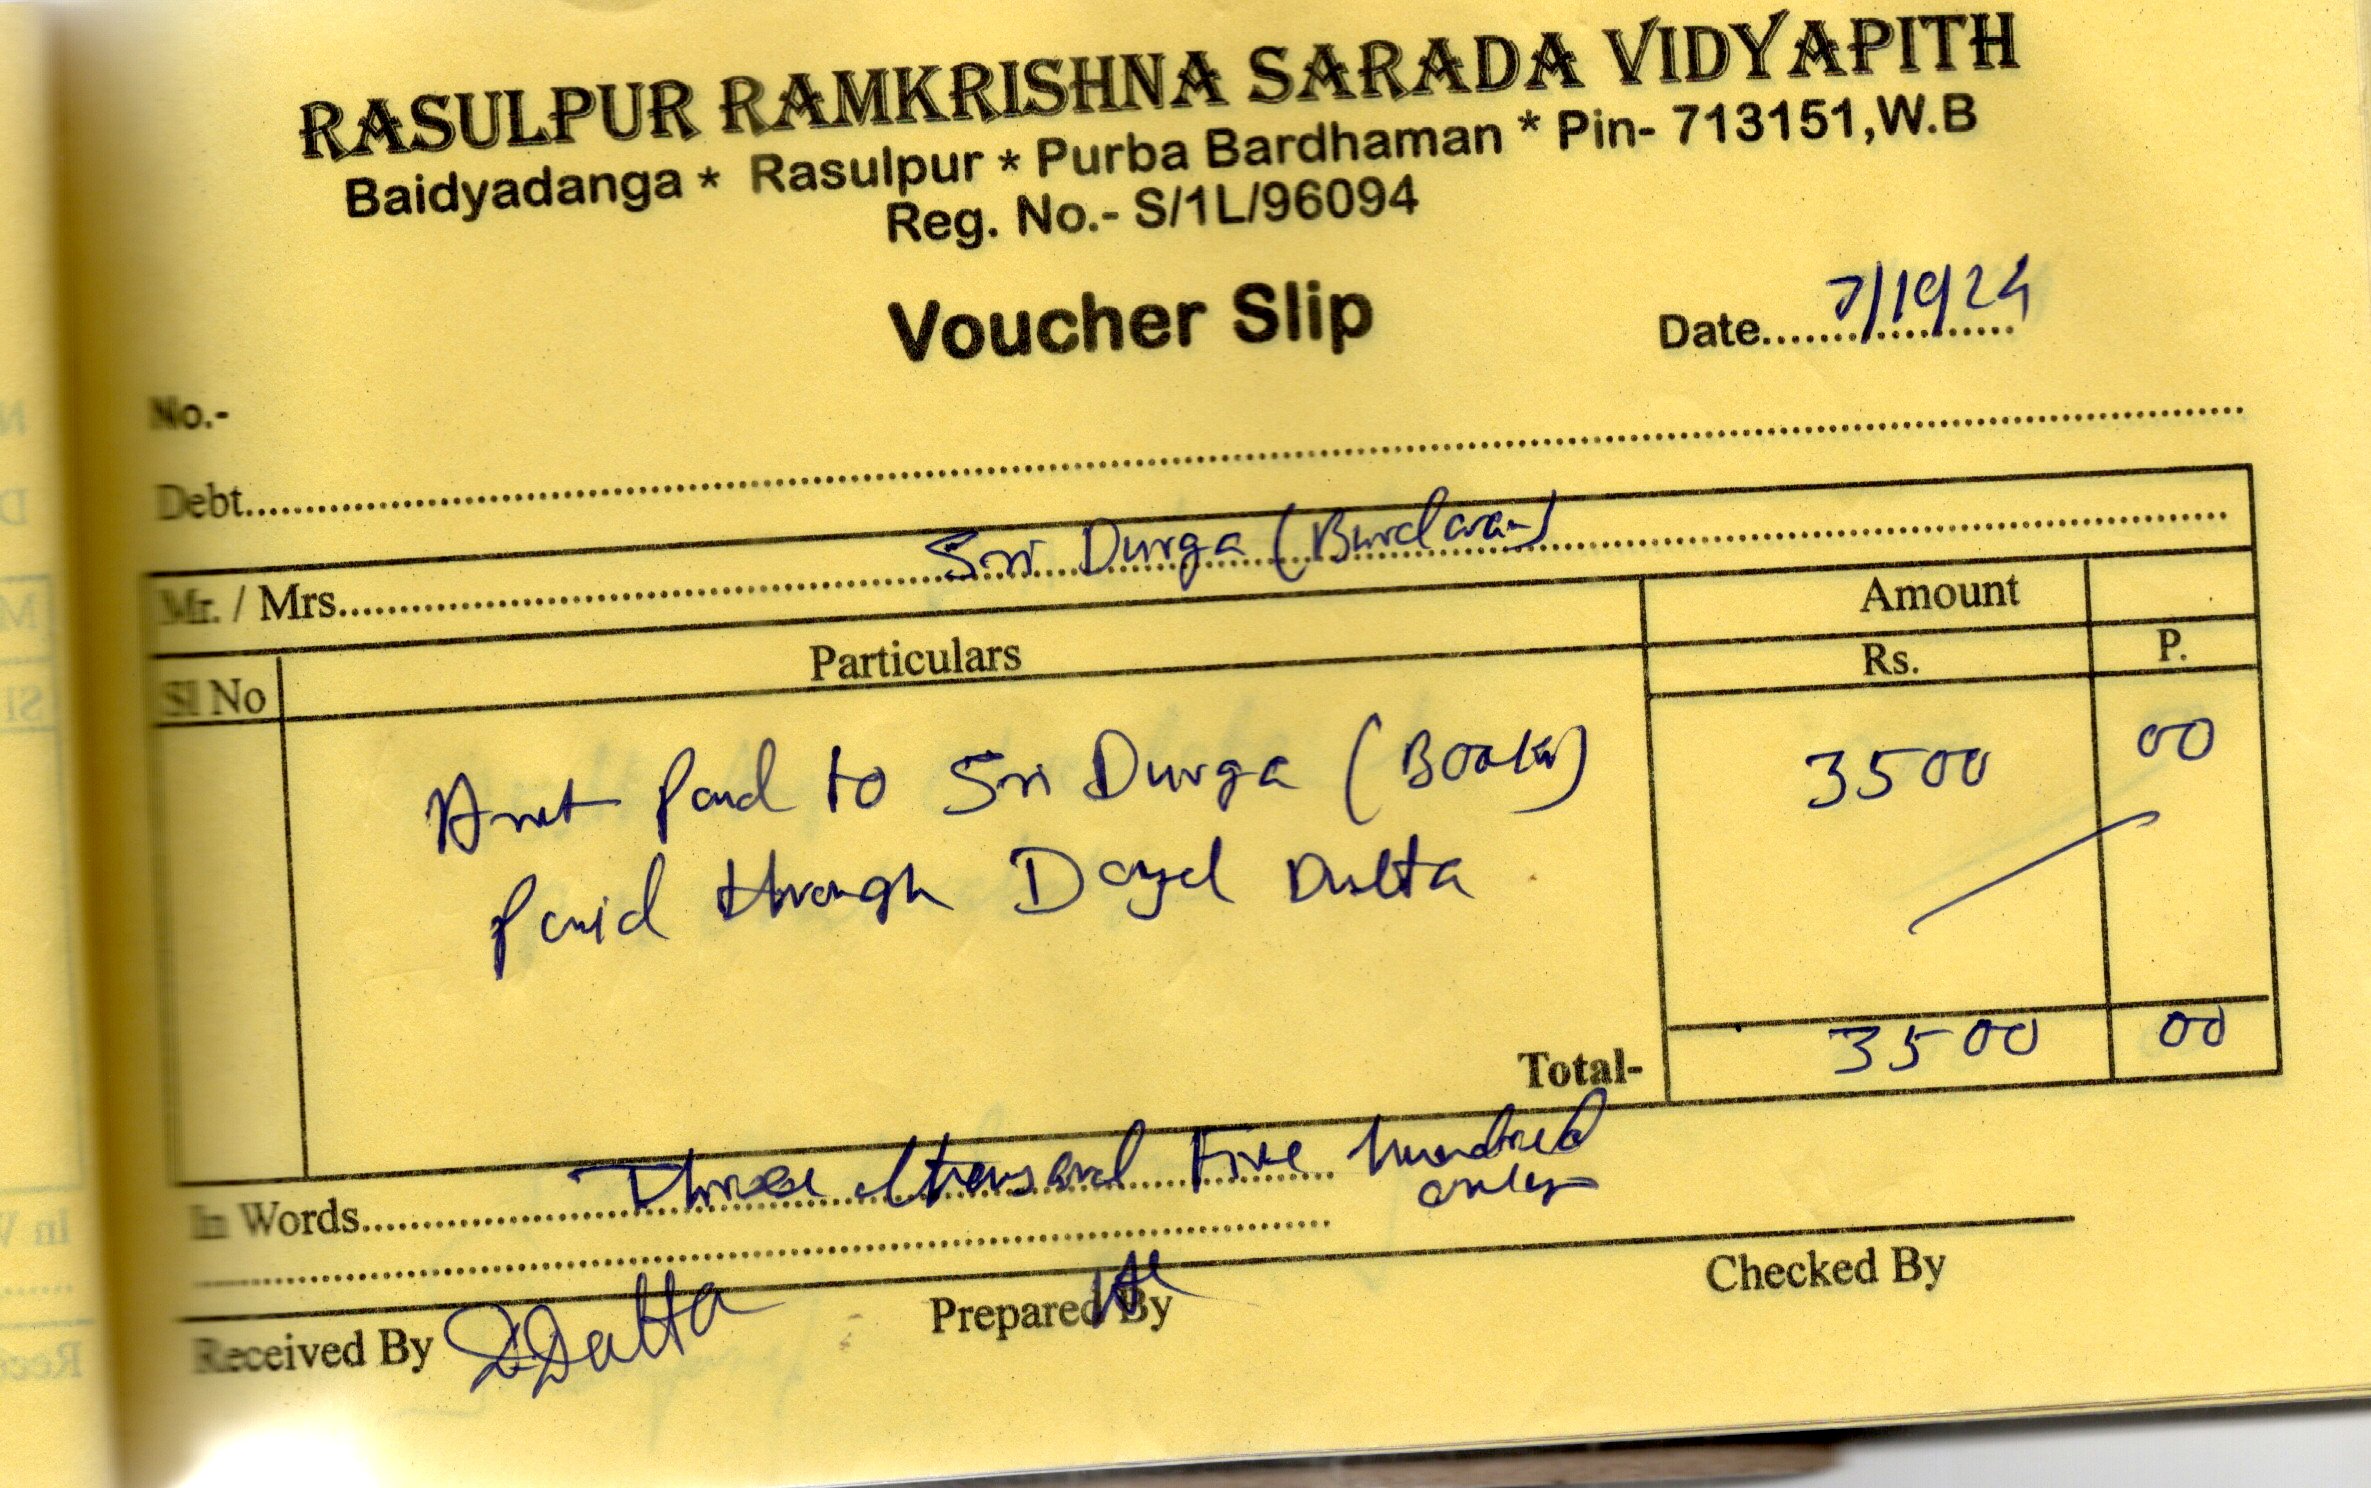 RASULPUR RAMKRISHNA SARADA VIDYAPITH
Baidyadanga * Rasulpur * Purba Bardhaman * Pin- 713151,W.B
Reg. No.- S/1L/96094
Voucher Slip
Date.....7/19/24
No.-
Debt.....
Mr. / Mrs..... Sri Durga (Burdwan)
Sl No Particulars Amount
Rs. P.
Amt Paid to Sri Durga (Book) 3500 00
Paid through Dayal Dutta
Total- 3500 00
In Words..... Three thousand Five hundred
only
Received By DDatta Prepared By Checked By